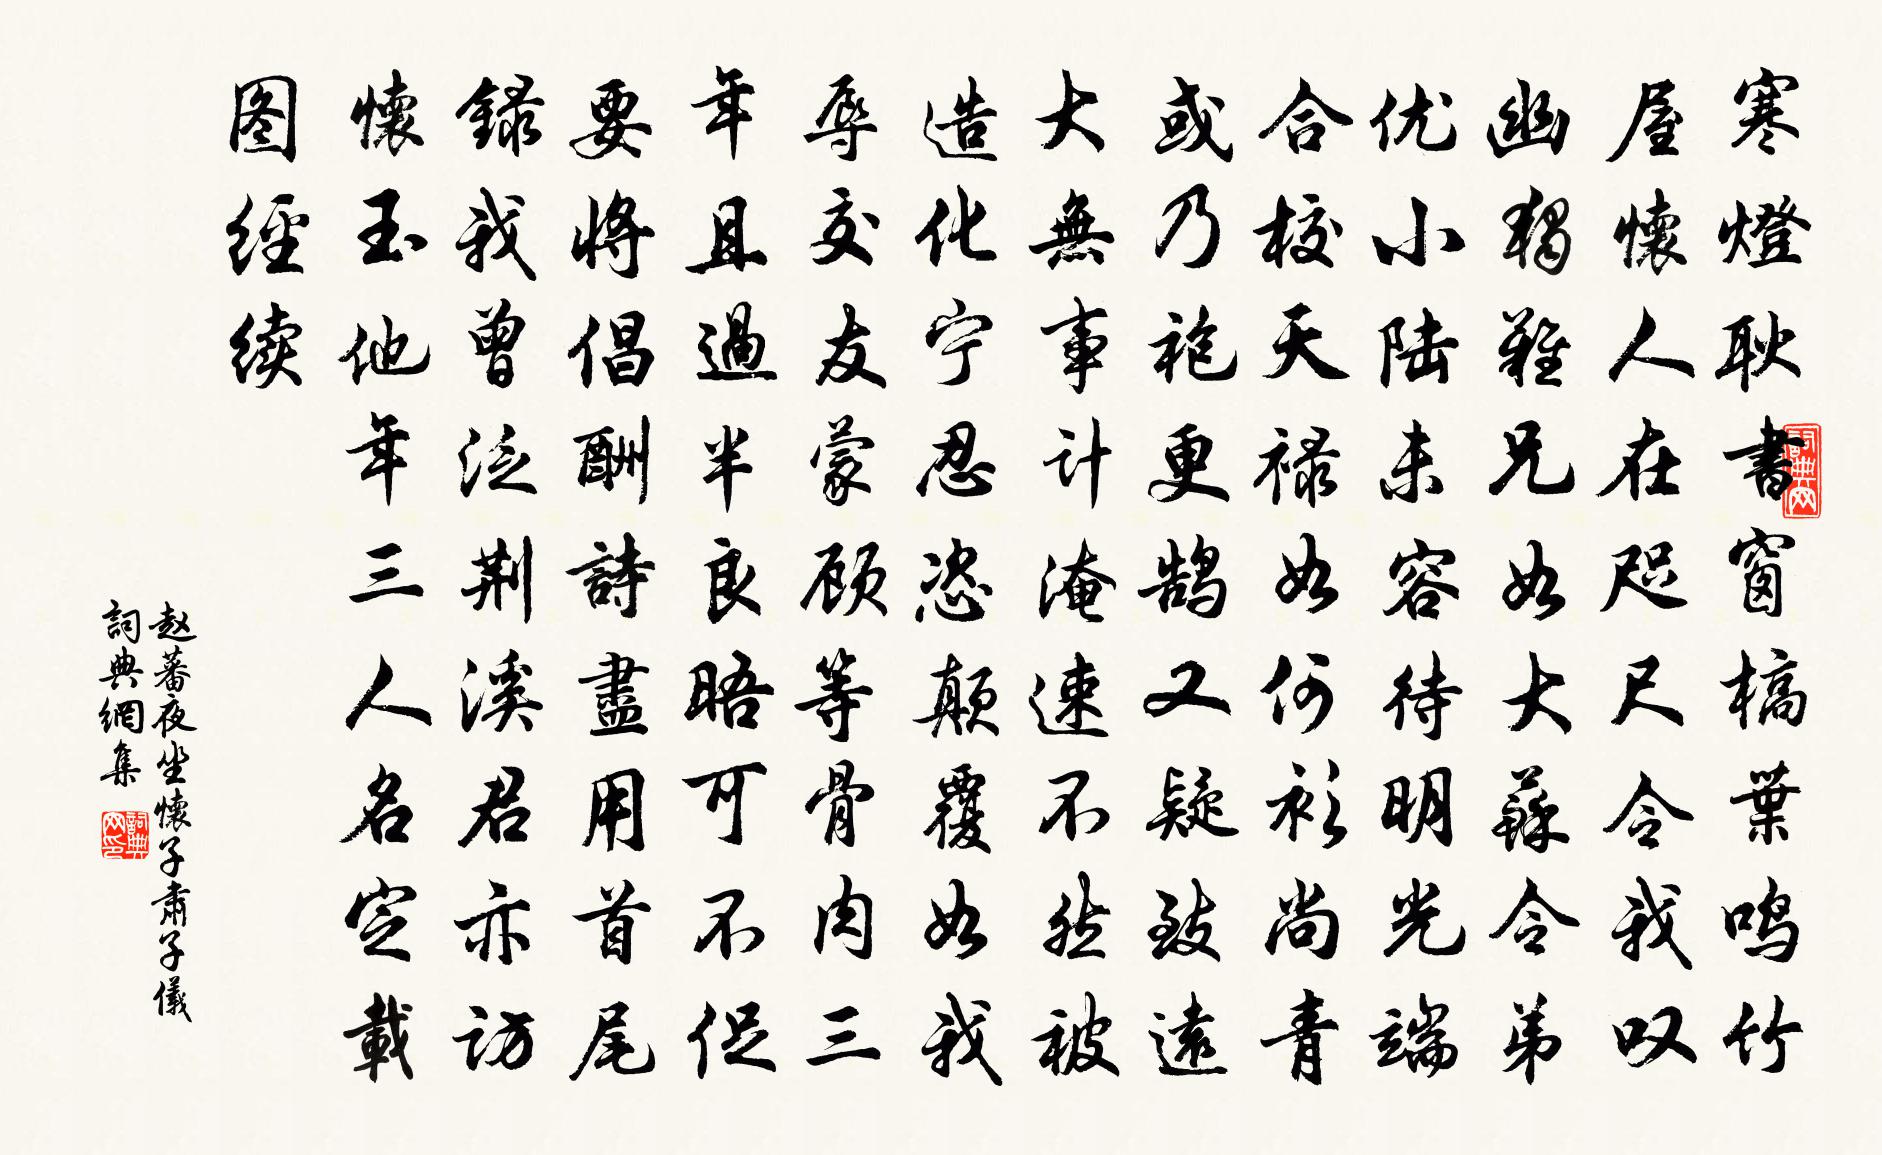 寒燈耿書窗槁葉鸣竹
屋懷人在咫尺令我叹
幽獨難兄如大蘇令弟
优小陆未容待明光端
合校天禄如何衫尚青
或乃袍更鹄又疑致遠
大無事计淹速不然被
造化宁忍恣颠覆如我
辱交友蒙顾等骨肉三
年且過半良晤可不促
要將倡酬詩盡用首尾
録我曾泛荆溪君亦访
懷玉他年三人名定載
图經续
赵蕃夜坐懷子肅子儀
詞典網集
詞典网
詞典网印